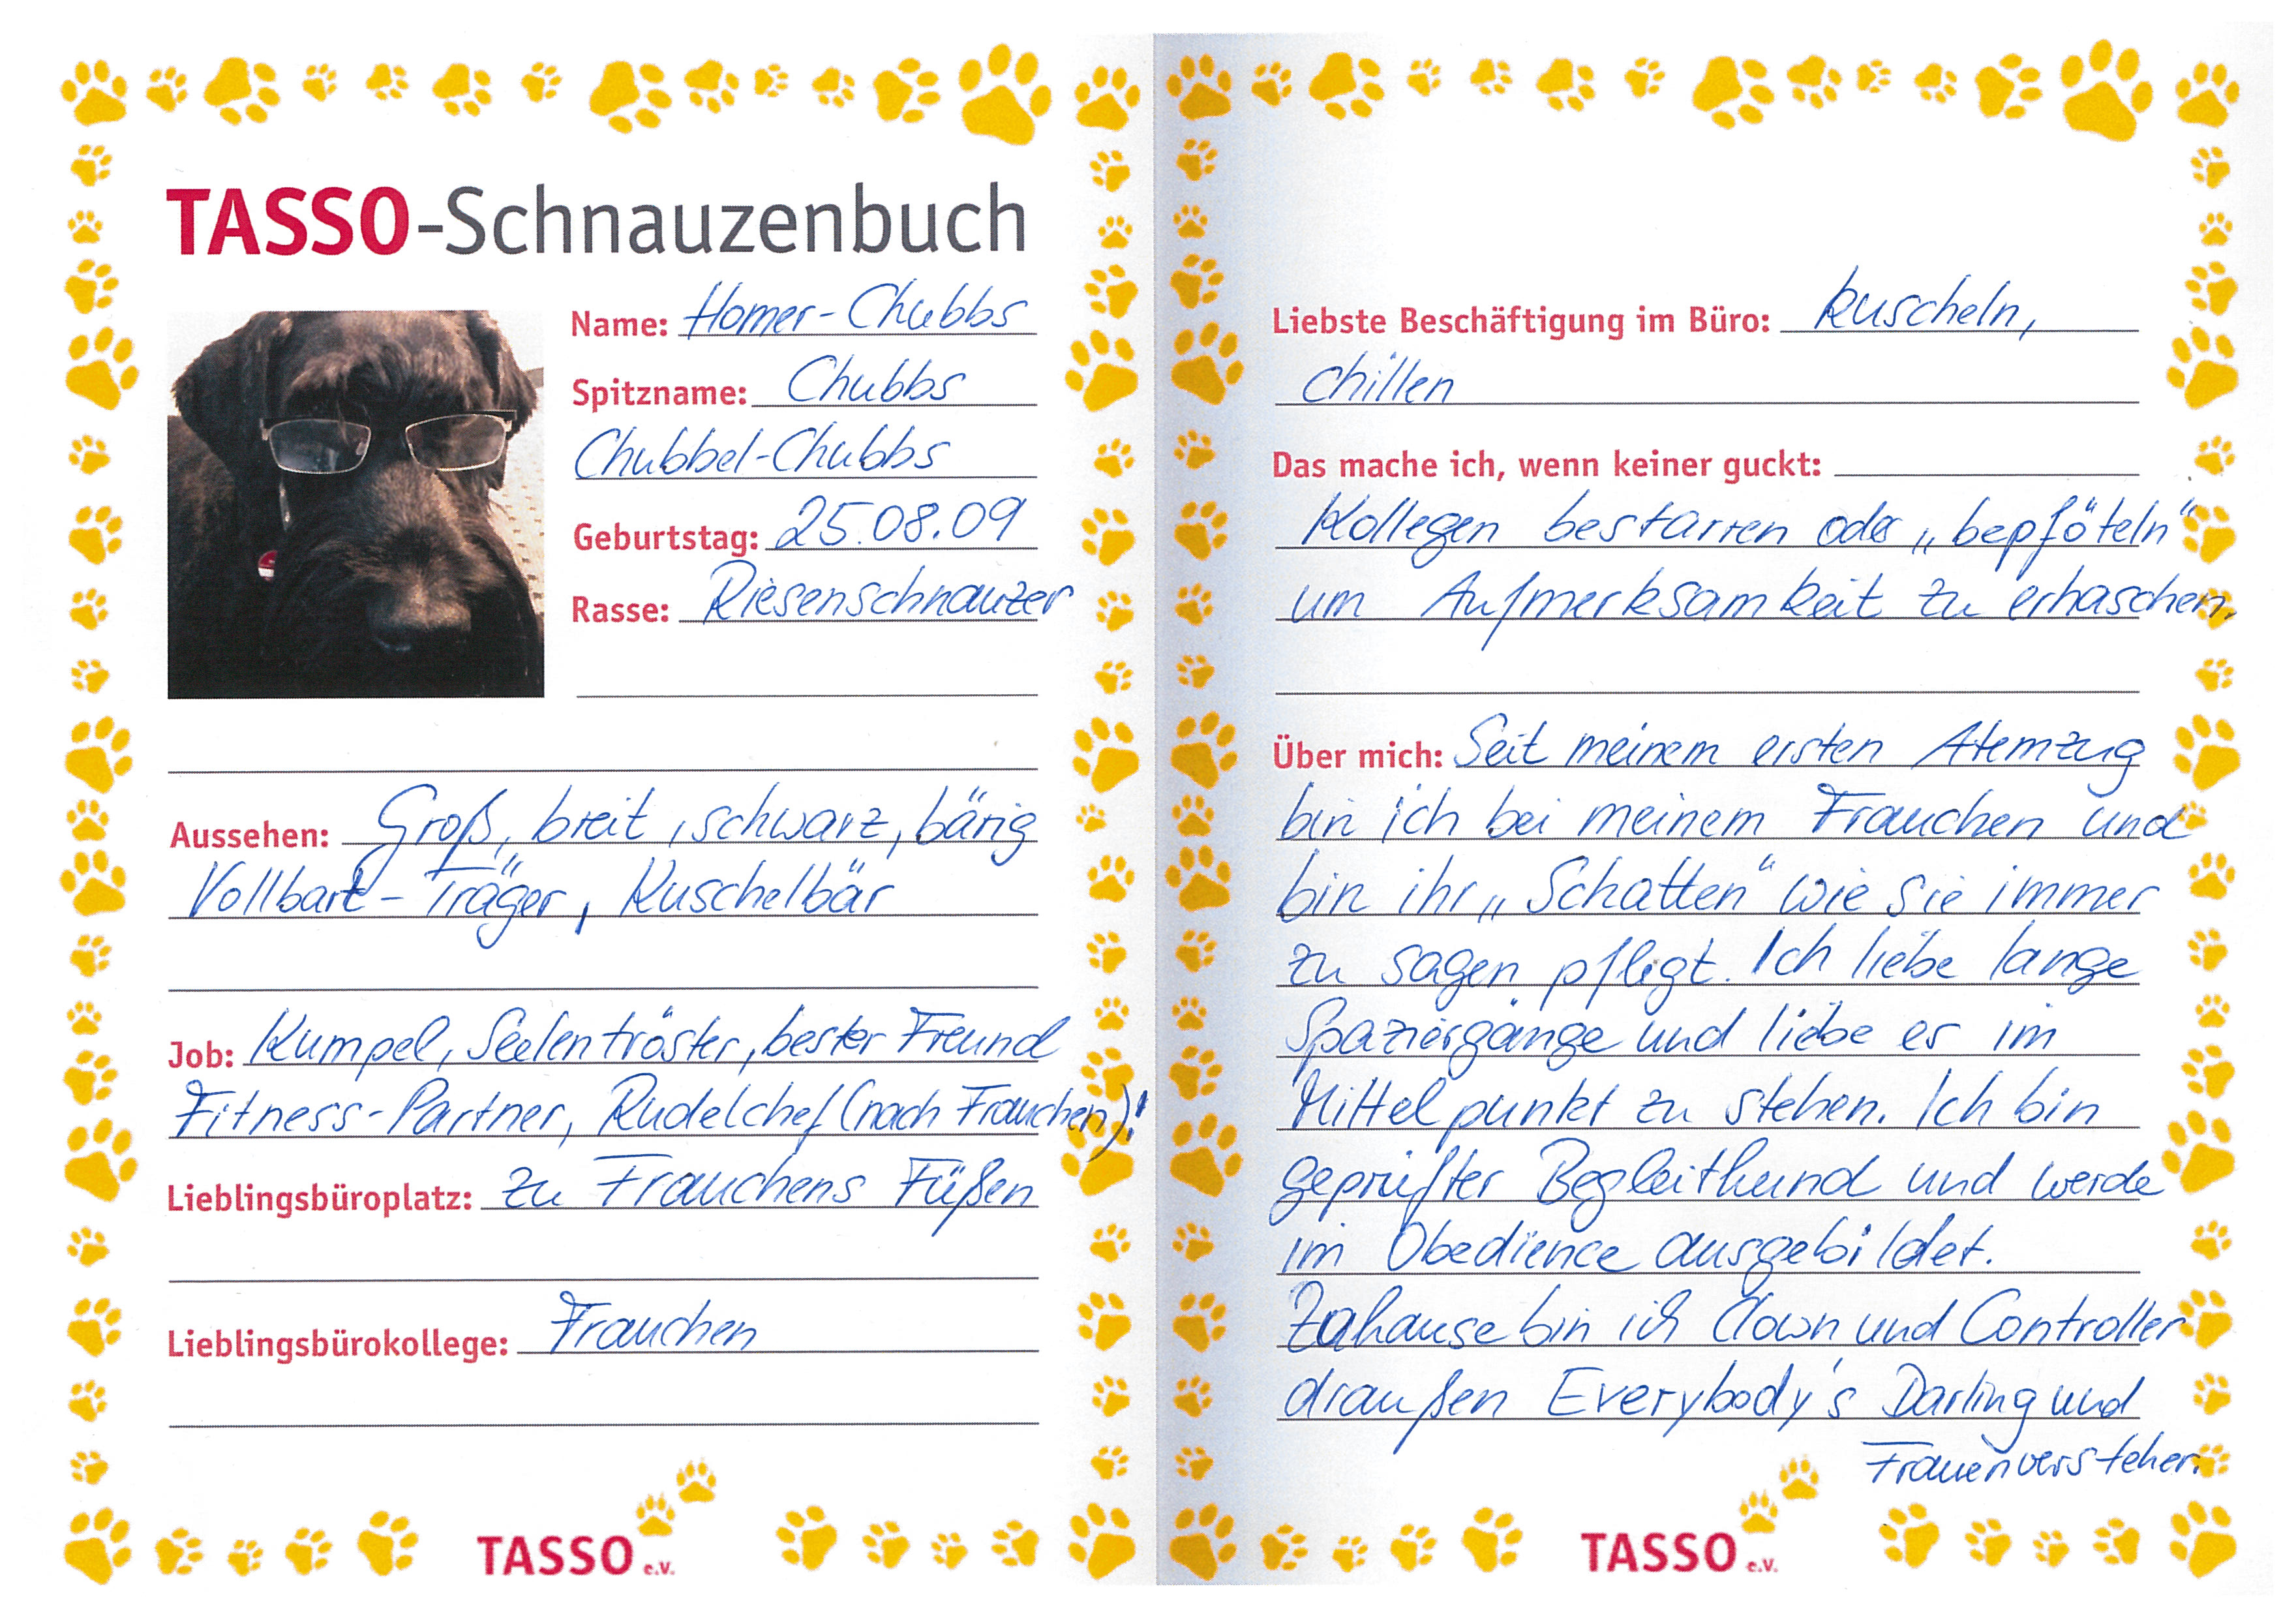 TASSO-Schnauzenbuch
Name: Homer-Chubbs
Spitzname: Chubbs
Chubbel-Chubbs
Geburtstag: 25.08.09
Rasse: Riesenschnauzer
Aussehen: Groß, breit, schwarz, bärig
Vollbart-Träger, Kuschelbär
Job: Kumpel, Seelentröster, bester Freund
Fitness-Partner, Rudelchef (nach Frauchen)!
Lieblingsbüroplatz: zu Frauchens Füßen
Lieblingsbürokollege: Frauchen
TASSO e.V.
Liebste Beschäftigung im Büro: kuscheln,
chillen
Das mache ich, wenn keiner guckt:
Kollegen bestarren oder „bepföteln“
um Aufmerksamkeit zu erhaschen.
Über mich: Seit meinem ersten Atemzug
bin ich bei meinem Frauchen und
bin ihr „Schatten“ wie sie immer
zu sagen pflegt. Ich liebe lange
Spaziergänge und liebe es im
Mittelpunkt zu stehen. Ich bin
geprüfter Begleithund und werde
im Obedience ausgebildet.
Zuhause bin ich Clown und Controller
draußen Everybody's Darling und
Frauenversteher.
TASSO e.V.